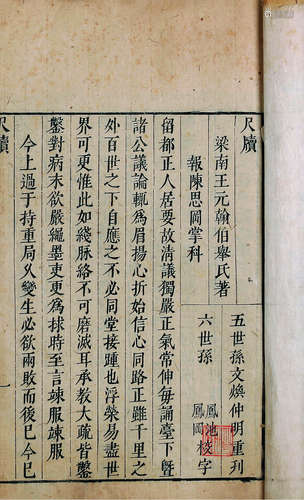 尺牘
梁南王元翰伯舉氏著
五世孫文煥仲明重刊
六世孫鳳池鳳岡校字
報陳思岡掌科
留都正人居要故清議獨嚴正氣常伸每誦臺下曁
諸公議論輒為眉揚心折始信心同路正雖千里之
外百世之下自應之不必同堂接踵也浮榮易盡世
界可更惟此如綫脉絡不可磨滅耳承教大疏皆鑿
鑿對病末欲嚴繩墨吏更為捄時至言竦服竦服
今上過于持重局久變生必欲兩敗而後已今已
尺牘